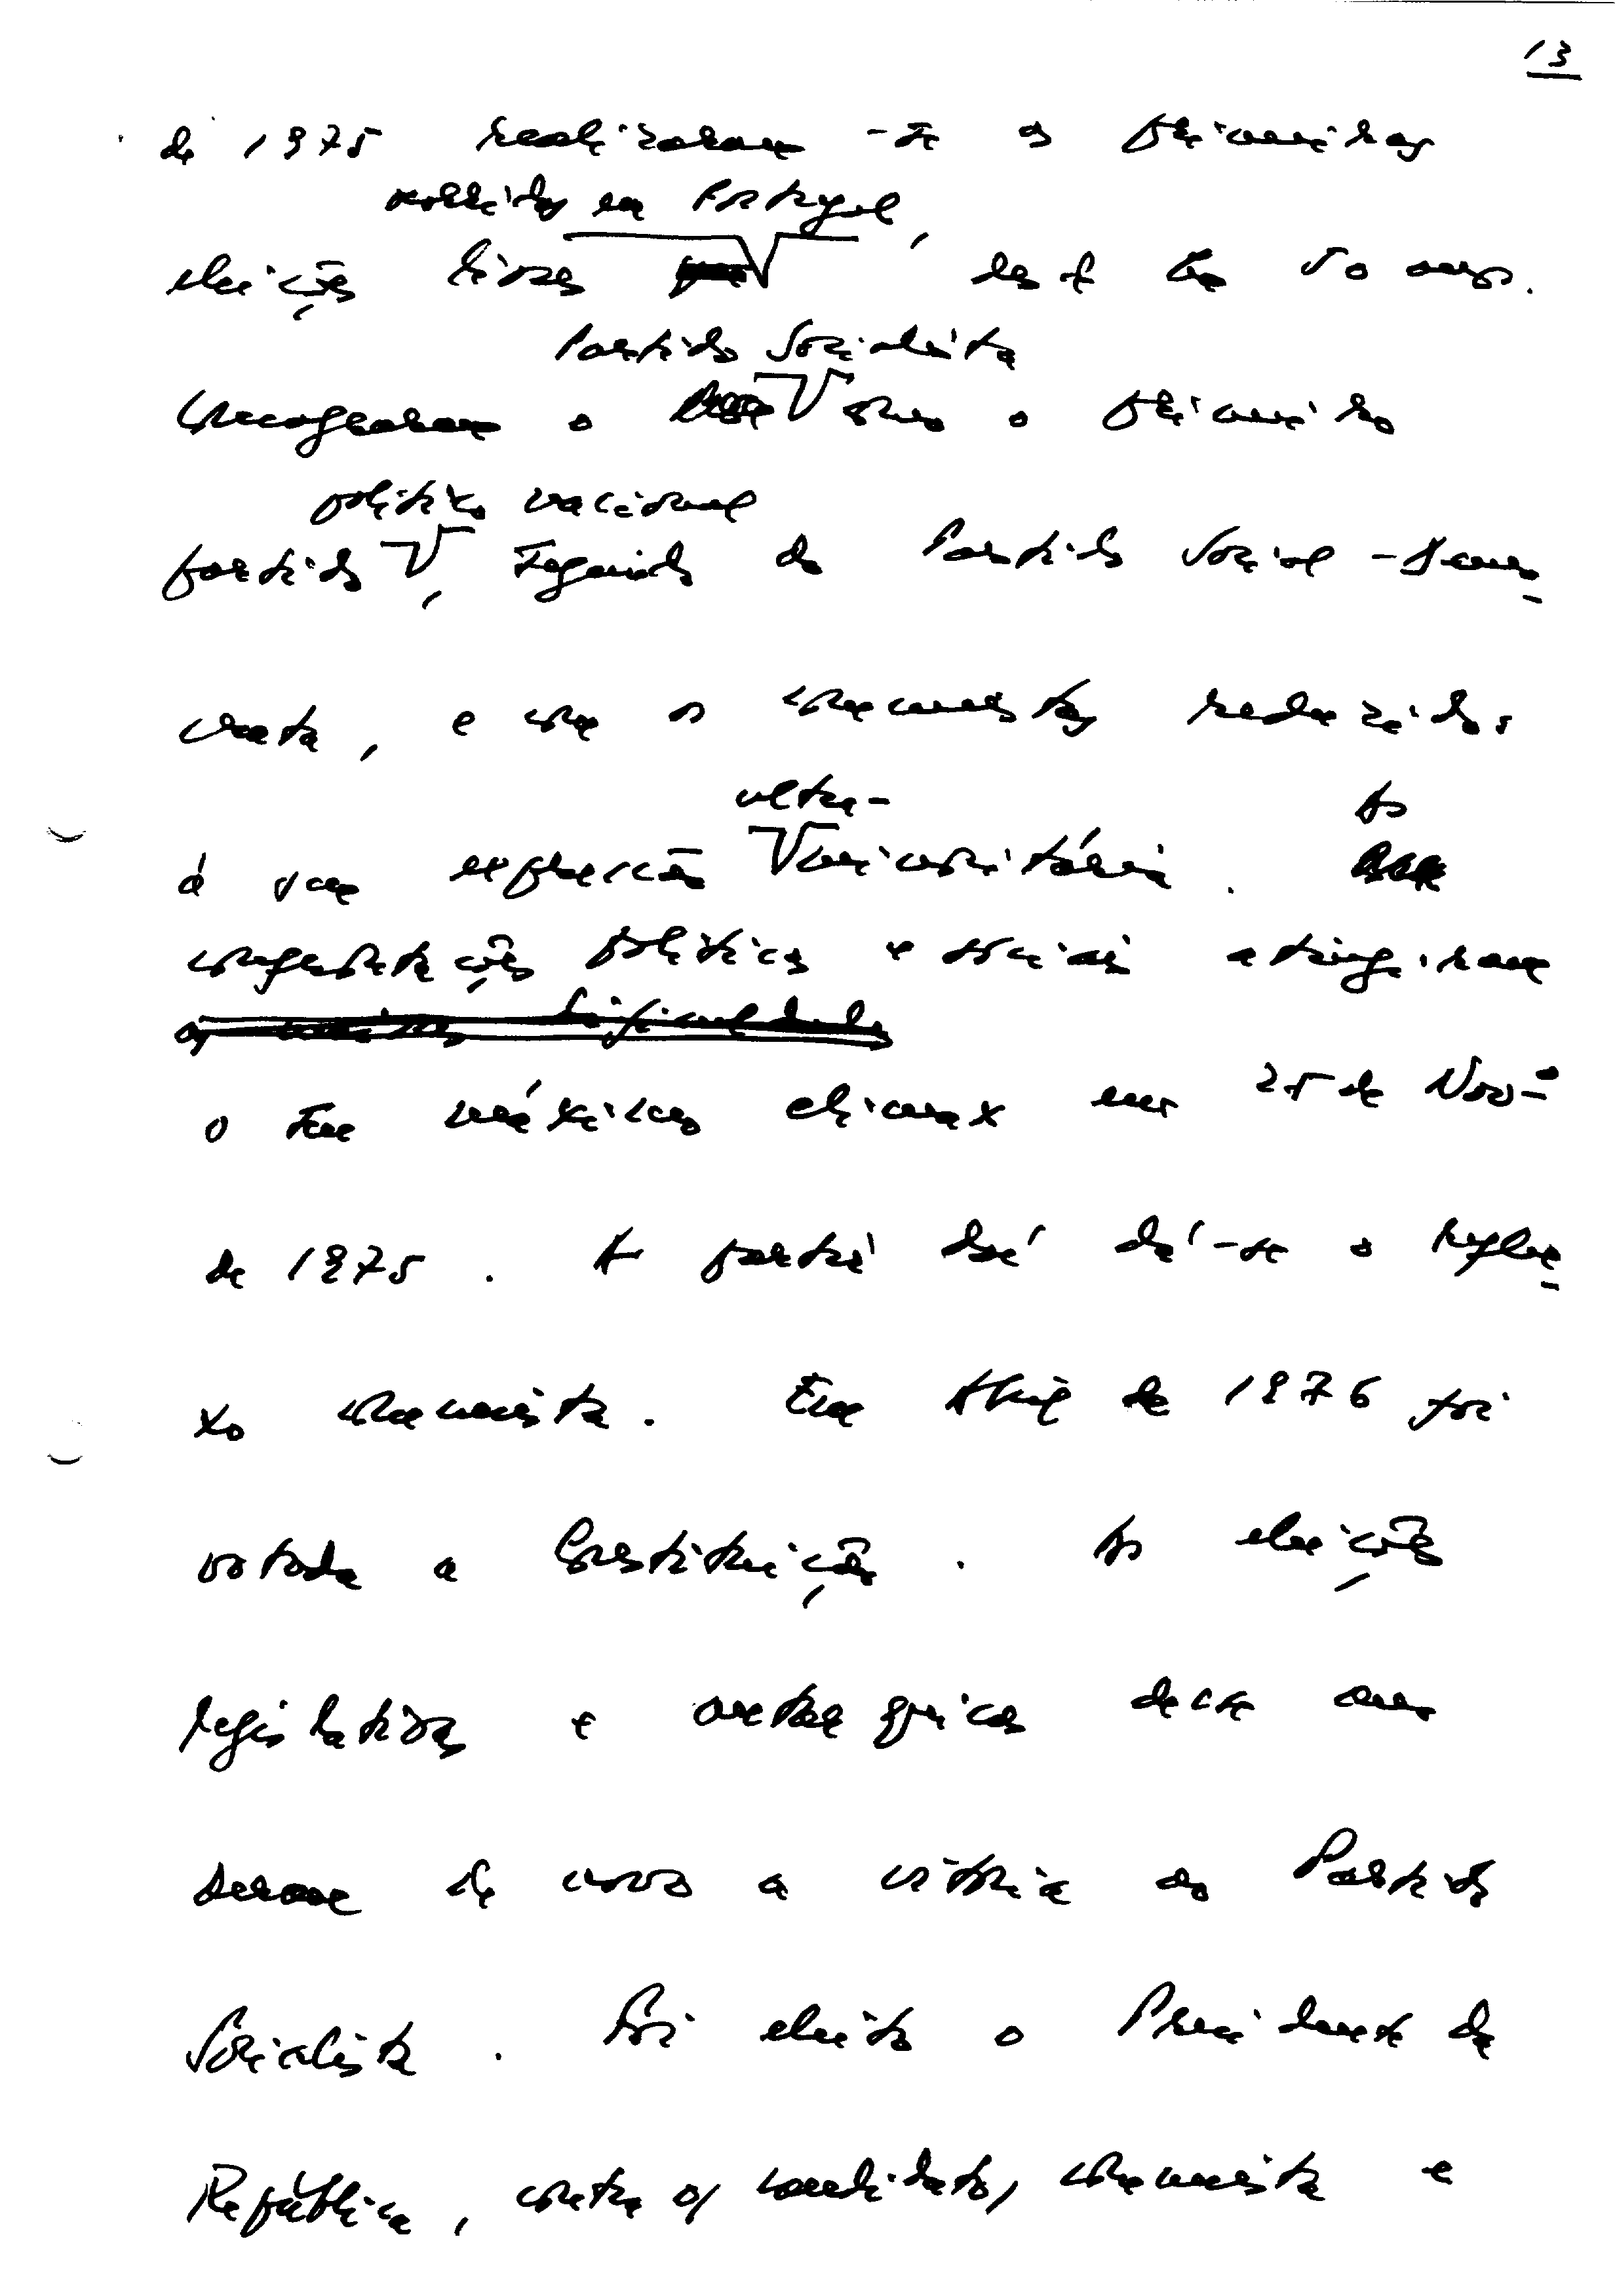 13
de 1975 realizaram-se as primeiras
havidas em Portugal,
eleições livres desde há 50 anos.
Partido Socialista
Consagraram o como o primeiro
político nacional
partido, seguido do Partido Social-Demo-
crata, e com os comunistas reduzidos
ultra-
à sua expressão minoritária. As
confrontações políticas e sociais atingiram
as muitas dificuldades
o seu máximo climax em 25 de Nov.º
de 1975. A partir daí dá-se o reflu-
xo comunista. Em Abril de 1976 foi
votada a Constituição. As eleições
legislativas e autárquicas desse ano
deram de novo a vitória ao Partido
Socialista. Foi eleito o Presidente da
República, contra os candidatos, comunista e